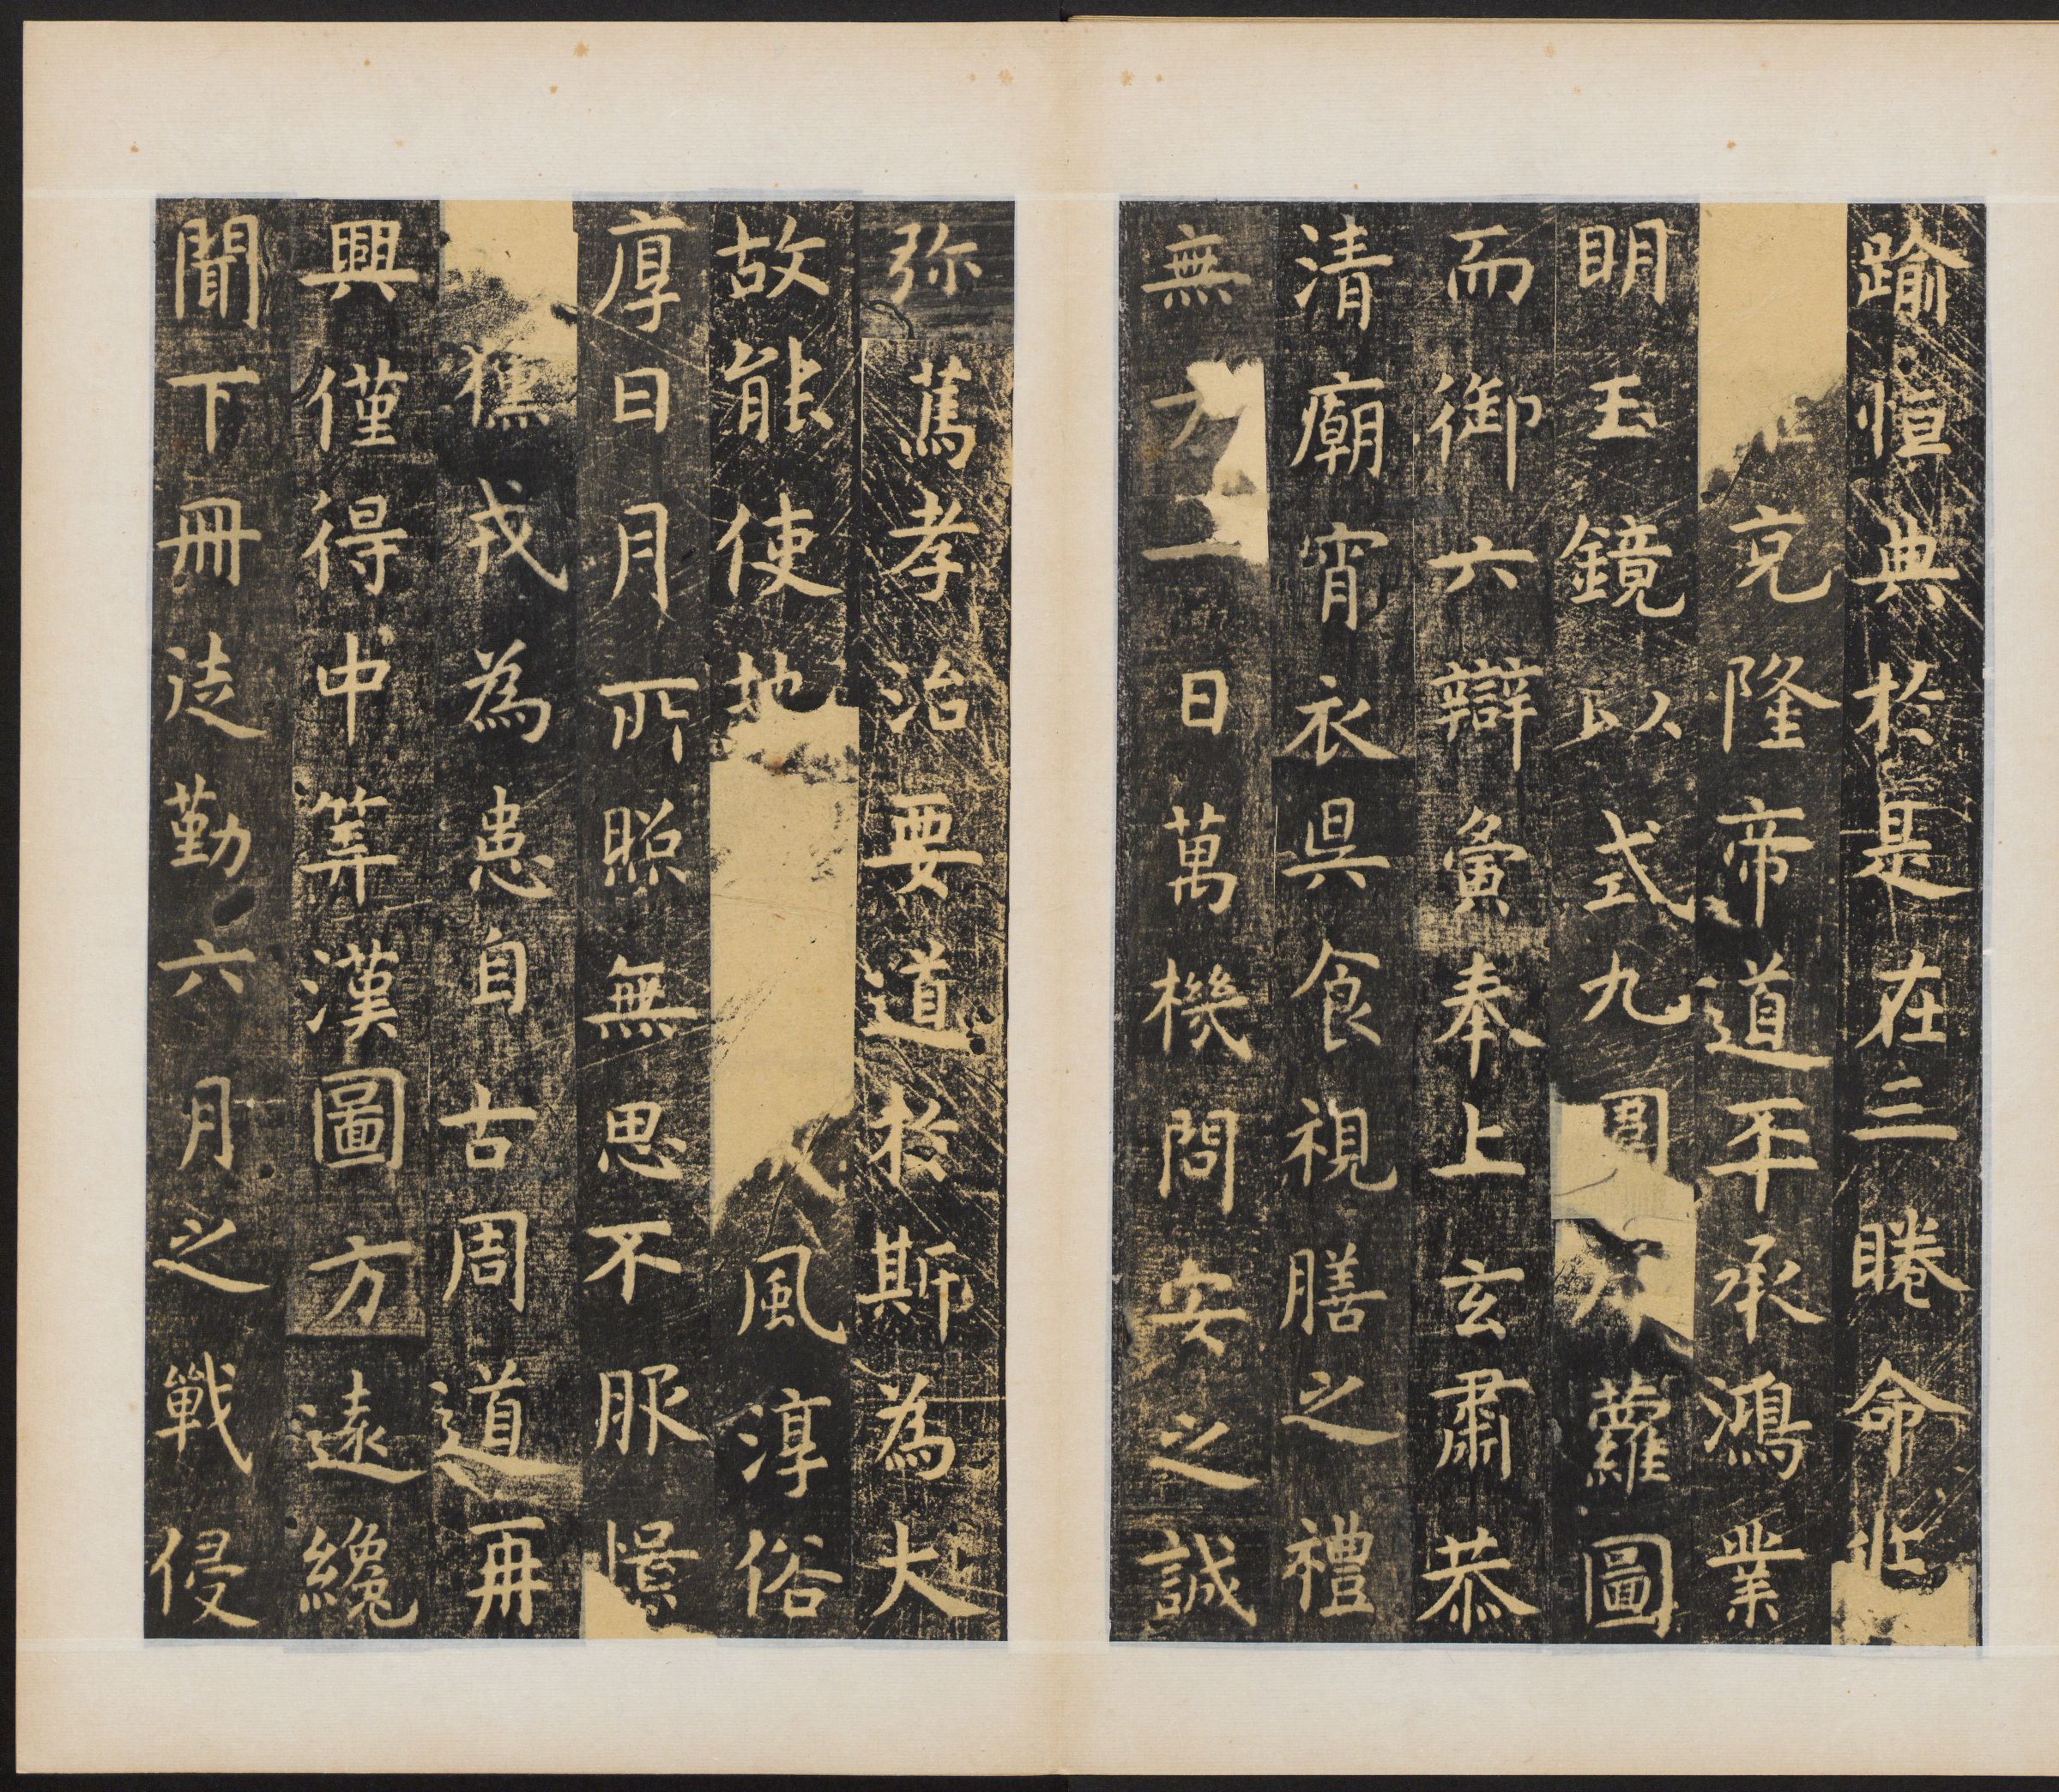 踰恒典於是在三睠命
克隆帝道丕承鴻業
明玉鏡以式九圍席蘿圖
而御六辯寅奉上玄肅恭
清廟宵衣昃食視膳之禮
無方一日萬機問安之誠
弥篤孝治要道於斯為大
故能使地風淳俗
厚日月所照無思不服憬
獯戎為患自古周道再
興僅得中筭漢圖方遠纔
聞下冊徒勤六月之戰侵